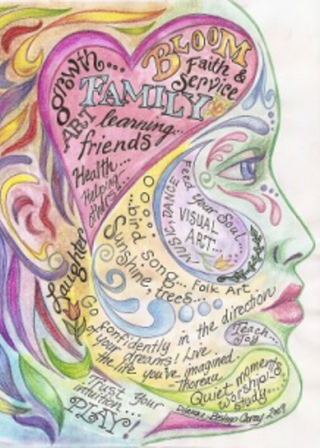 growth...
BLOOM
Faith &
Service
FAMILY
ART
learning...
friends
Health...
Helping
others...
Laughter
Feed Your Soul...
MUSIC, DANCE
VISUAL
ART...
...bird song...
Sunshine, trees...
Folk Art
Go confidently in the direction
of your dreams! Live
the life you've imagined
Thoreau
Teach
Joy
Quiet moments
worship
study
Trust Your
intuition...
PLAY!